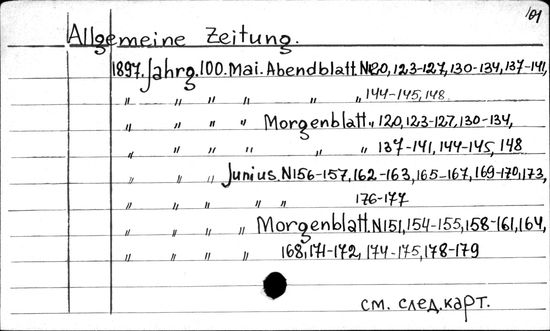 101
Allgemeine Zeitung.
1897. Jahrg. 100. Mai. Abendblatt. N120, 123-127, 130-134, 137-141,
" " " " " " 144-145, 148
" " " " Morgenblatt " 120, 123-127, 130-134,
" " " " " " 137-141, 144-145, 148
" " " Junius. N156-157, 162-163, 165-167, 169-170, 173,
" " " " " 176-177
" " " " Morgenblatt. N151, 154-155, 158-161, 164,
" " " " 168, 171-172, 174-175, 178-179
см. след. карт.